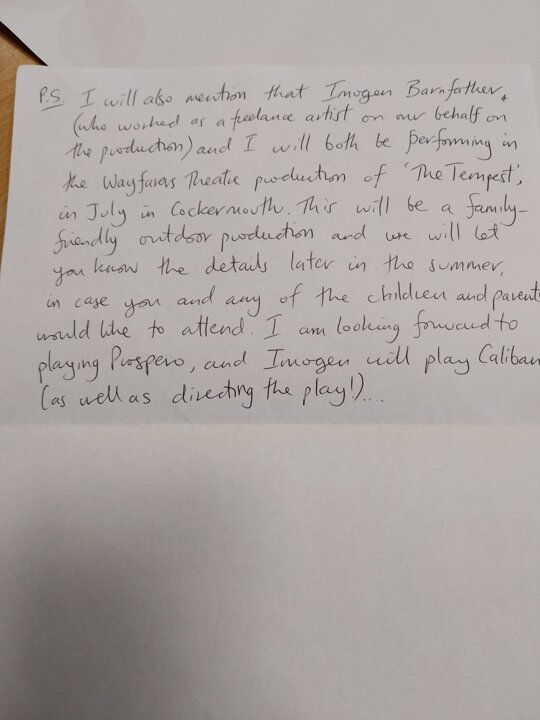 P.S. I will also mention that Imogen Barnfather,
(who worked as a freelance artist on our behalf on
the production) and I will both be performing in
the Wayfarers Theatre production of 'The Tempest',
in July in Cockermouth. This will be a family-
friendly outdoor production and we will let
you know the details later in the summer,
in case you and any of the children and parents
would like to attend. I am looking forward to
playing Prospero, and Imogen will play Caliban
(as well as directing the play!)....